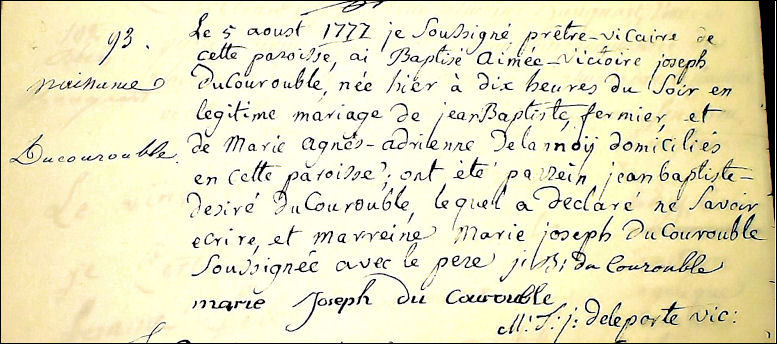 93.
naissance
Ducourouble.
Le 5 aoust 1777 je Soussigné prêtre-vicaire de
cette paroisse, ai Baptisé Aimée-Victoire joseph
DuCourouble, née hier à dix heures du Soir en
legitime mariage de jeanBaptiste, fermier, et
de Marie Agnès-adrienne Delannoÿ domiciliés
en cette paroisse; ont été parrein jeanbaptiste-
desiré DuCourouble, lequel a declaré ne Savoir
ecrire, et marreine Marie joseph DuCourouble
Soussignée avec le pere j: B: du Courouble
marie Joseph du Courouble
M: S: j: deleporte vic: